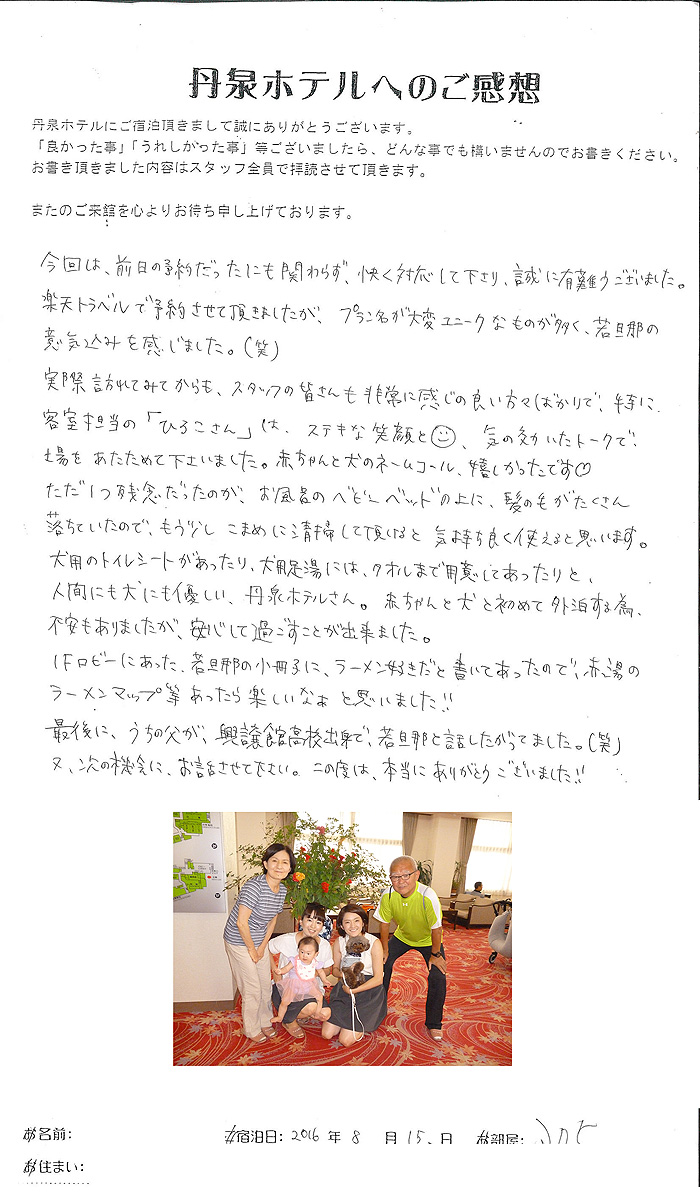 丹泉ホテルへのご感想
丹泉ホテルにご宿泊頂きまして誠にありがとうございます。
「良かった事」「うれしかった事」等ございましたら、どんな事でも構いませんのでお書きください。
お書き頂きました内容はスタッフ全員で拝読させて頂きます。
またのご来館を心よりお待ち申し上げております。
今回は、前日の予約だったにも関わらず、快く対応して下さり、誠に有難うございました。
楽天トラベルで予約させて頂きましたが、プラン名が大変ユニークなものが多く、若旦那の
意気込みを感じました。(笑)
実際訪れてみてからも、スタッフの皆さんも非常に感じの良い方々ばかりで、特に、
客室担当の「ひろこさん」は、ステキな笑顔と☺、気の効いたトークで、
場をあたためて下さいました。赤ちゃんと犬のネームコール、嬉しかったです♡
ただ1つ残念だったのが、お風呂のベビーベッドの上に、髪の毛がたくさん
落ちていたので、もう少しこまめに清掃して頂けると気持ち良く使えると思います。
犬用のトイレシートがあったり、犬用足湯には、タオルまで用意してあったりと、
人間にも犬にも優しい、丹泉ホテルさん。赤ちゃんと犬と初めて外泊する為、
不安もありましたが、安心して過ごすことが出来ました。
1Fロビーにあった、若旦那の小冊子に、ラーメン好きだと書いてあったので、赤湯の
ラーメンマップ等あったら楽しいなぁと思いました!!
最後に、うちの父が、興譲館高校出身で、若旦那と話したがってました。(笑)
又、次の機会に、お話させて下さい。この度は、本当にありがとうございました!!
お名前:
ご宿泊日: 2016 年 8 月 15、日 お部屋:
お住まい: